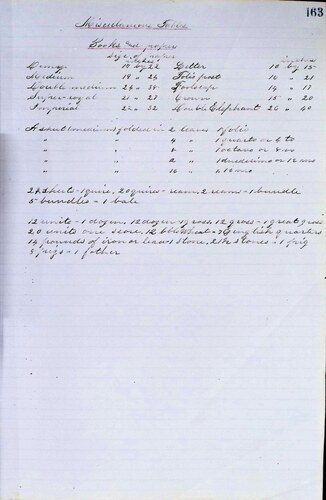 163
Miscellaneous Tables
Books and paper
size of paper
inches inches
Demy 17 by 22 Letter 10 by 15
Medium 19 " 24 Folio post 16 " 21
Double medium 24 " 38 Foolscap 14 " 17
Super-royal 21 " 27 Crown 15 " 20
Imperial 22 " 32 Double Elephant 26 " 40
A sheet measuring folded in 2 leaves 1 folio
" " " 4 " 1 quarto or 4 to
" " " " 1 octavo or 8 vo
" " " " 1 duodecimo or 12 mo
" " " " 1, 16 mo
24 sheets 1 quire, 20 quires - ream, 2 reams - 1 bundle
5 bundles - 1 bale
12 units - 1 dozen, 12 dozen - gross 12 gross - 1 great gross
20 units one score, 12 bbls wheat - english quarters
14 pounds of iron or lead 1 stone, 21½ stones - 1 pig
8 pigs - 1 fother